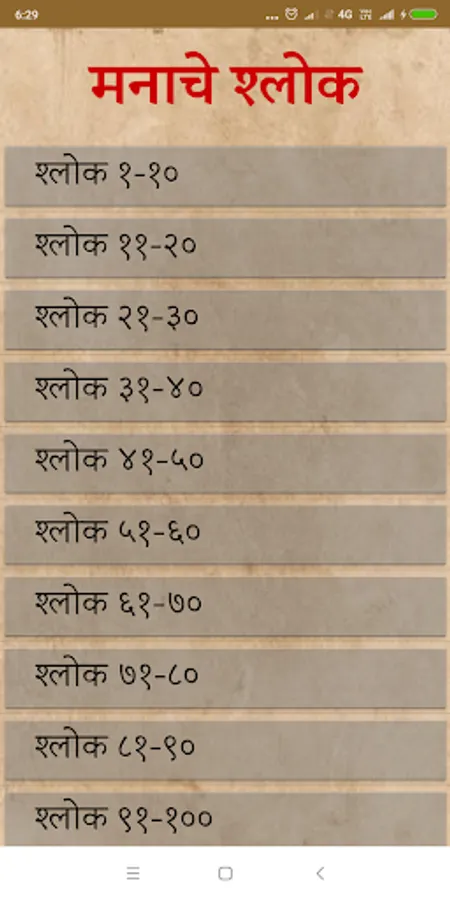 6:29 ... 4G
मनाचे श्लोक
श्लोक १-१०
श्लोक ११-२०
श्लोक २१-३०
श्लोक ३१-४०
श्लोक ४१-५०
श्लोक ५१-६०
श्लोक ६१-७०
श्लोक ७१-८०
श्लोक ८१-९०
श्लोक ९१-१००